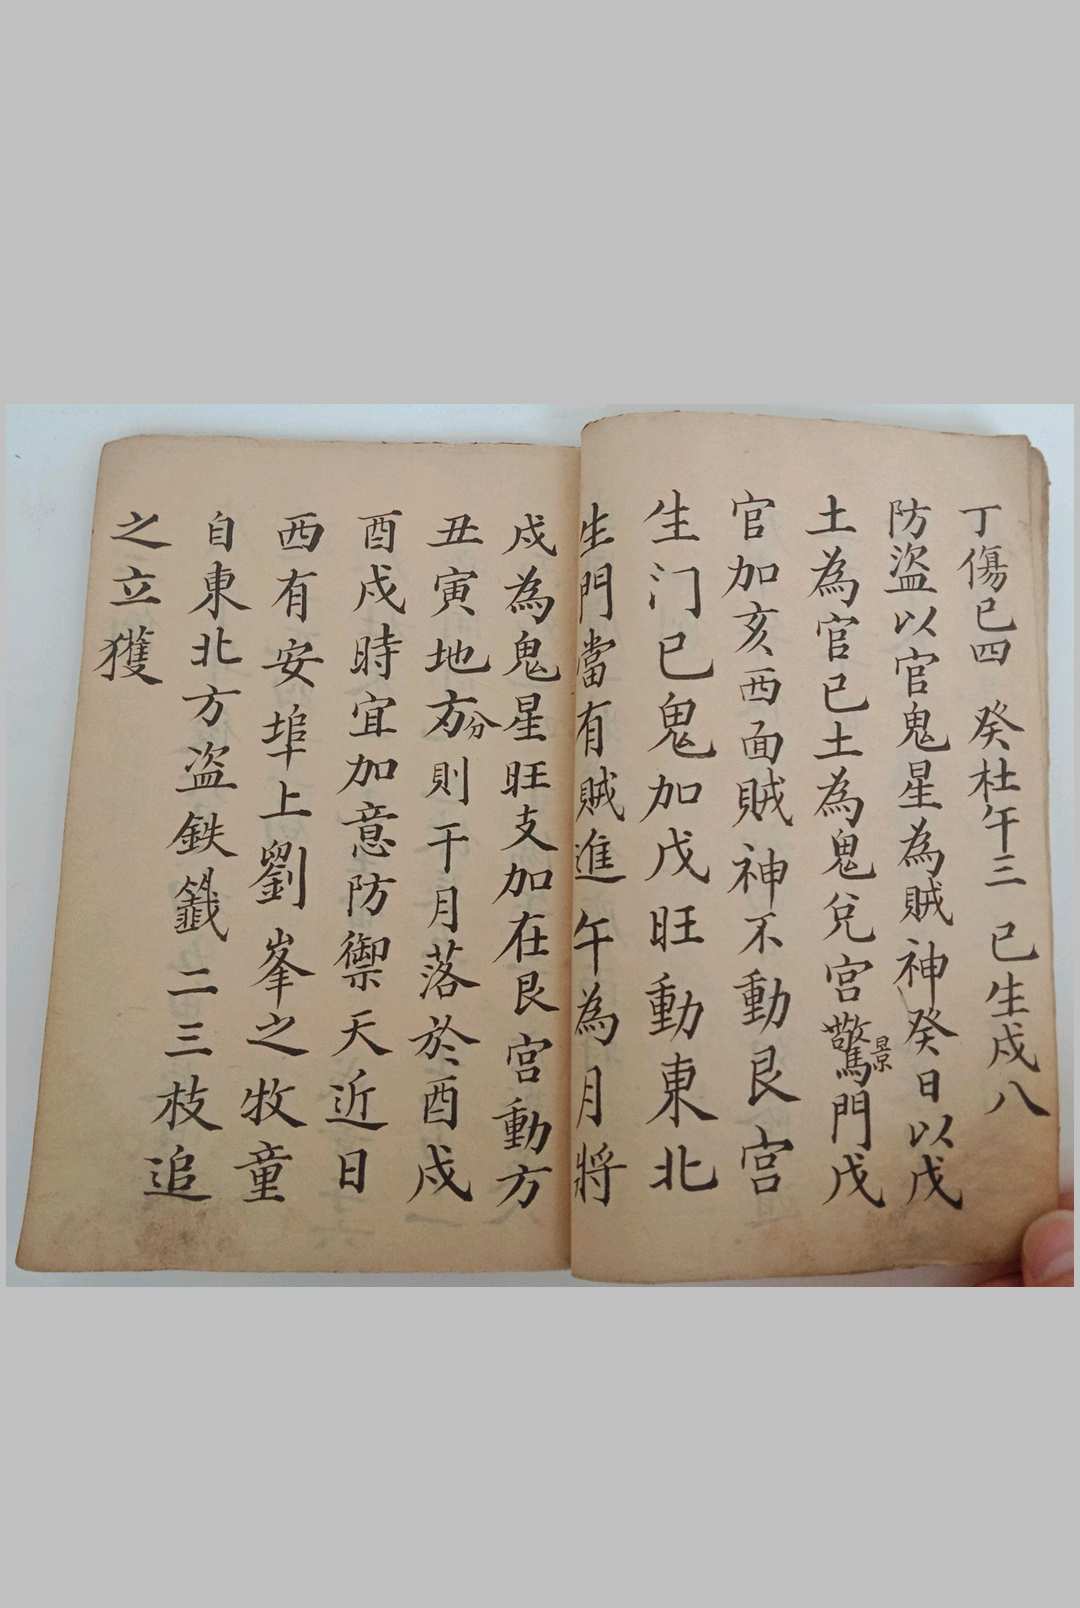 丁傷已四　癸杜午三　已生戍八
防盜以官鬼星為賊神癸日以戊
土為官已土為鬼兌宮驚景門戊
官加亥西面賊神不動艮宮
生门已鬼加戊旺動東北
生門當有賊進午為月將
戍為鬼星旺支加在艮宮動方
丑寅地方分則干月落於酉戍
酉戍時宜加意防禦天近日
西有安埠上劉峯之牧童
自東北方盗鉄籤二三枝追
之立獲